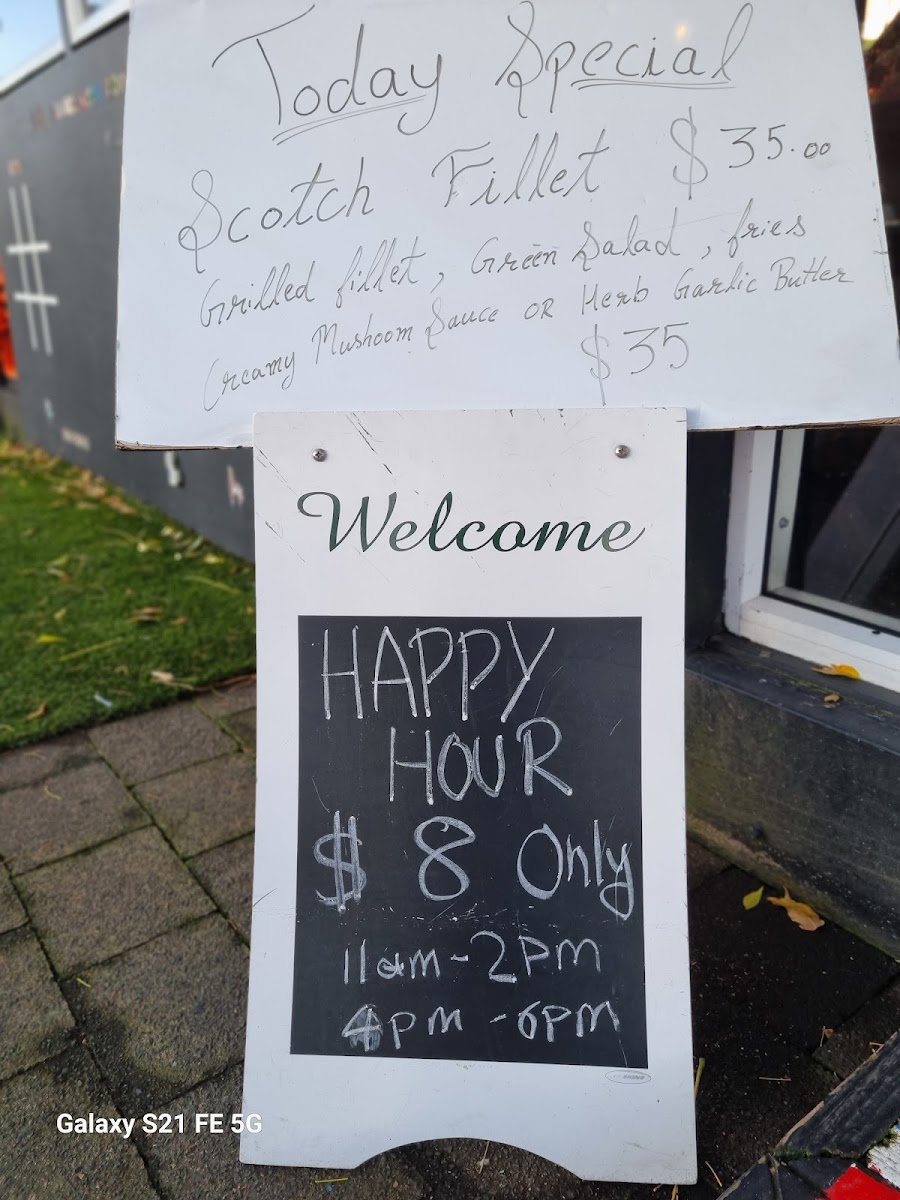 Today Special
Scotch Fillet $35.00
Grilled fillet, Green Salad, fries
Creamy Mushoom Sauce OR Herb Garlic Butter
$35
Welcome
HAPPY
HOUR
$8 Only
11am-2pm
4pm-6pm
Galaxy S21 FE 5G